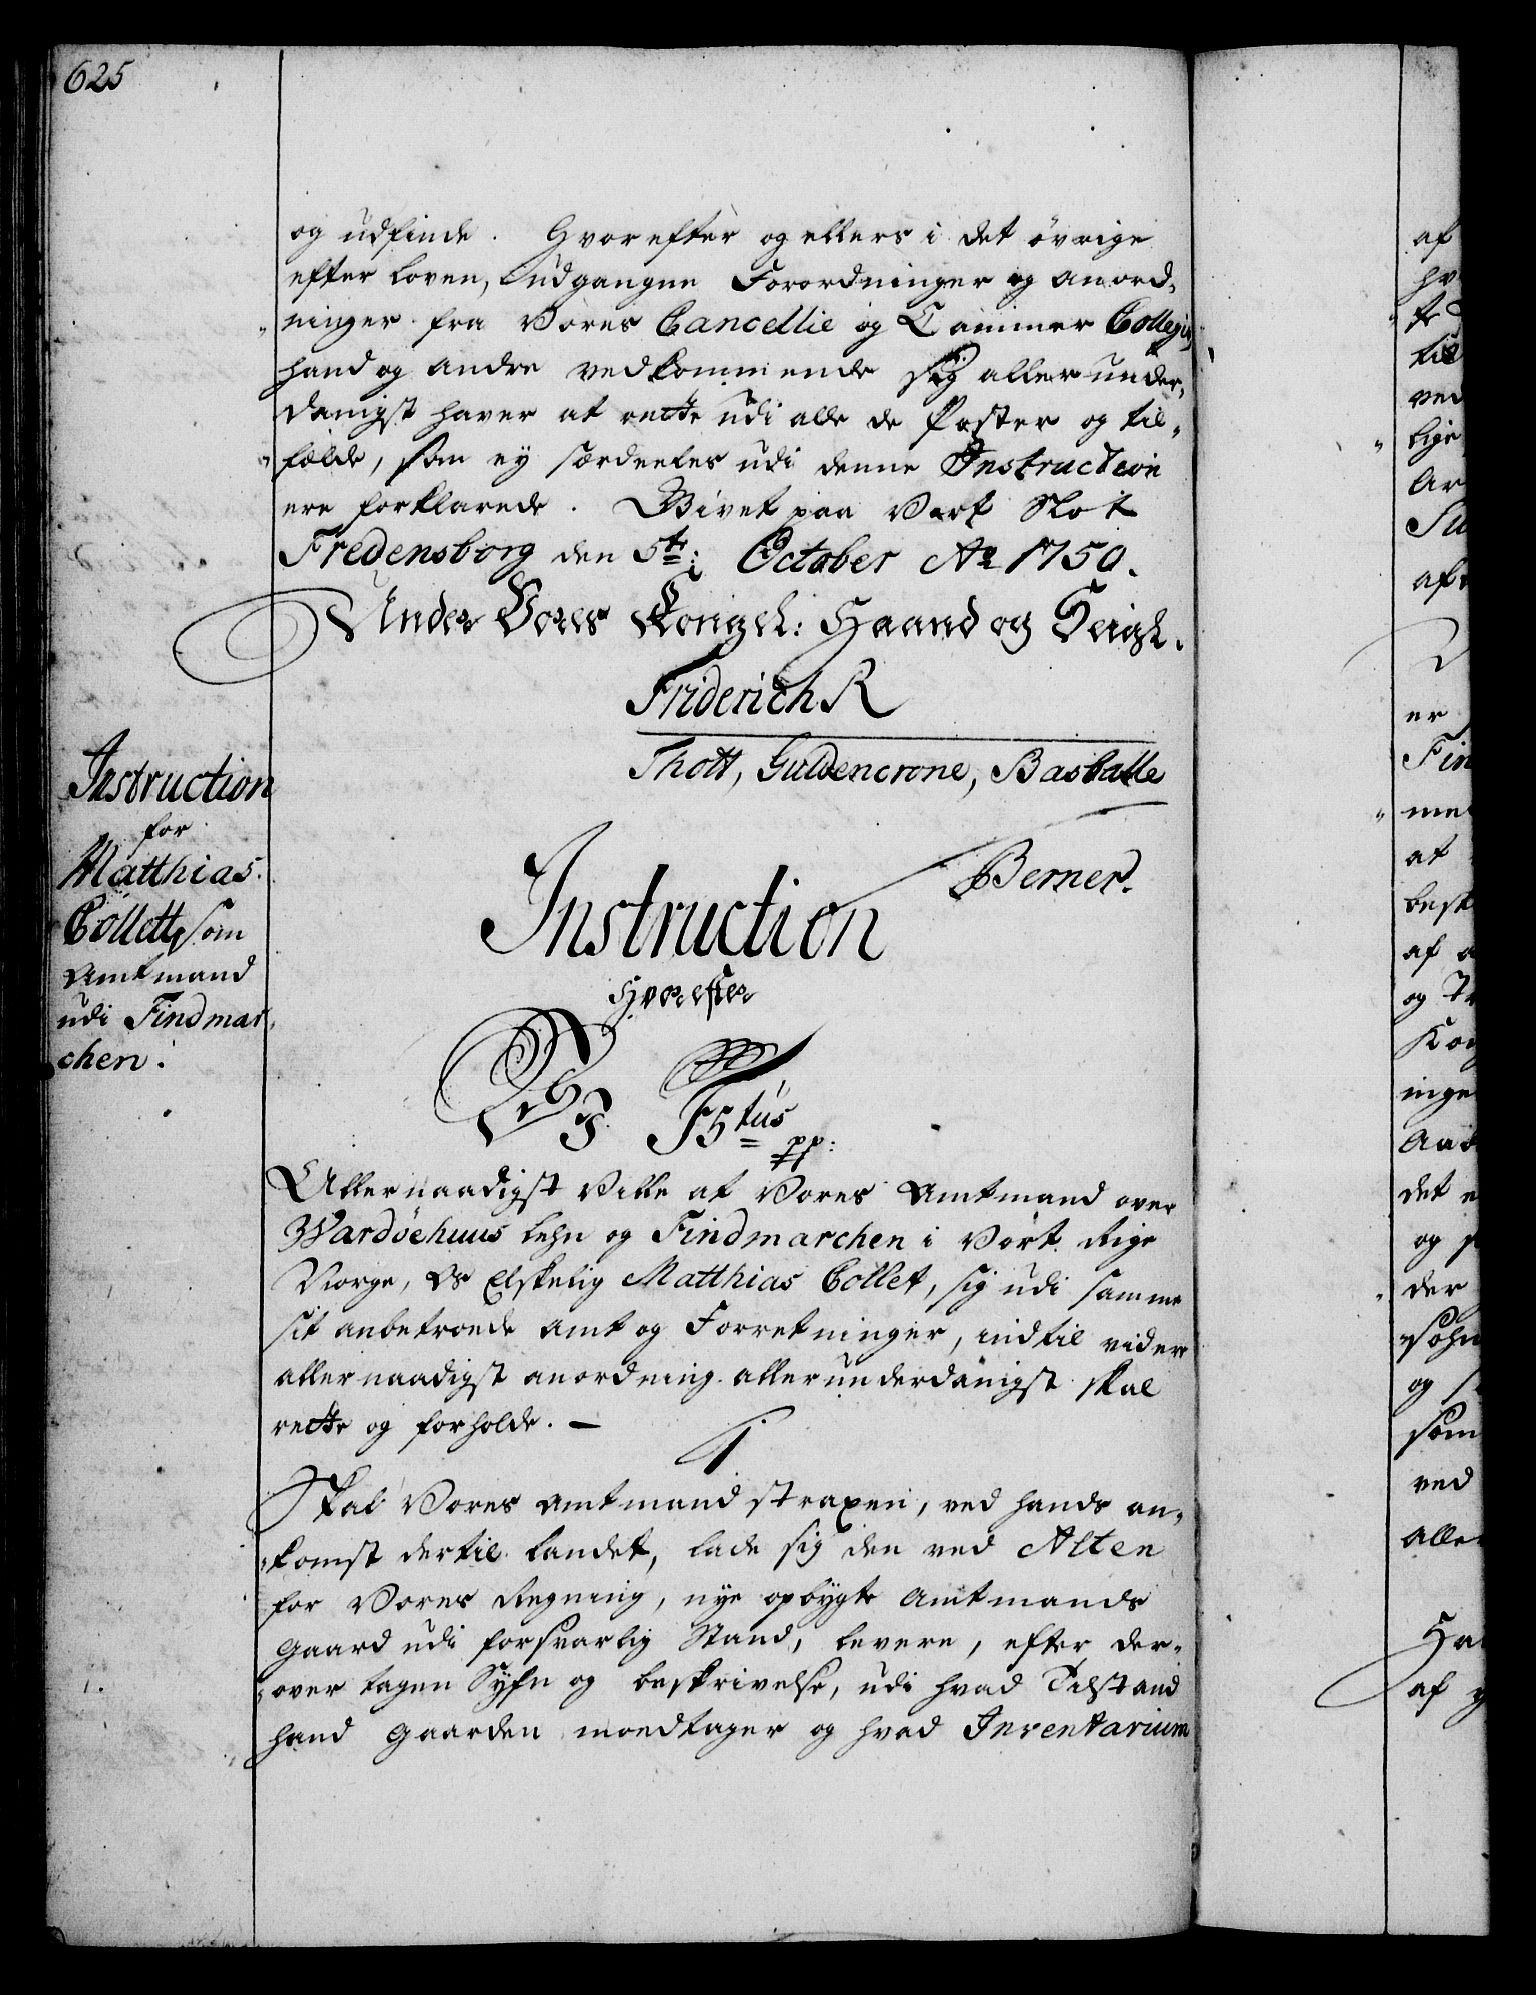 625
og udfinde. Hvorefter og ellers i det öfrige
efter loven, udgangne Forordninger og anord-
ninger fra Vores Cancellie og Cammer Collegio,
hand og andre vedkommende sig allerunder-
danigst haver at rette udi alle de Poster og til-
fælde, som ey særdeeles udi denne Instruction
ere forklarede. Givet paa Vort Slot
Fredensborg den 5te: October Ao 1750.
Under Vores Kongel: Haand og Seigl.
Friderich R
Thott, Guldencrone, Basballe
Berner.
Instruction
for
Matthias
Collett, som
Amtmand
udi Findmar-
chen.
Instruction
Hvorefter
Vi F5tus
pp:
Allernaadigst Ville at Vores Amtmand over
Wardöehuus lehn og Findmarchen i Vort Rige
Norge, Os Elskelig Matthias Collet, sig udi samme
sit anbetroede amt og Forretninger, indtil videre
allernaadigst anordning allerunderdanigst skal
rette og forholde. —
1.
Skal Vores amtmand straxen, ved hands an-
komst dertil landet, lade sig den ved Alten
for Vores Regning, nye opbygte Amtmands
Gaard udi forsvarlig Stand, levere, efter der-
over tagen Syfn og beskrivelse, udi hvad Tilstand
hand Gaarden moedtager og hvad Inventarium
af
hv
til
ved
lige
Ar
af
er
Fin
me
at
besk
af
og Tr
Kon
inge
Aat
det e
og
der
söhn
og
som
ved
aller
Ha
af